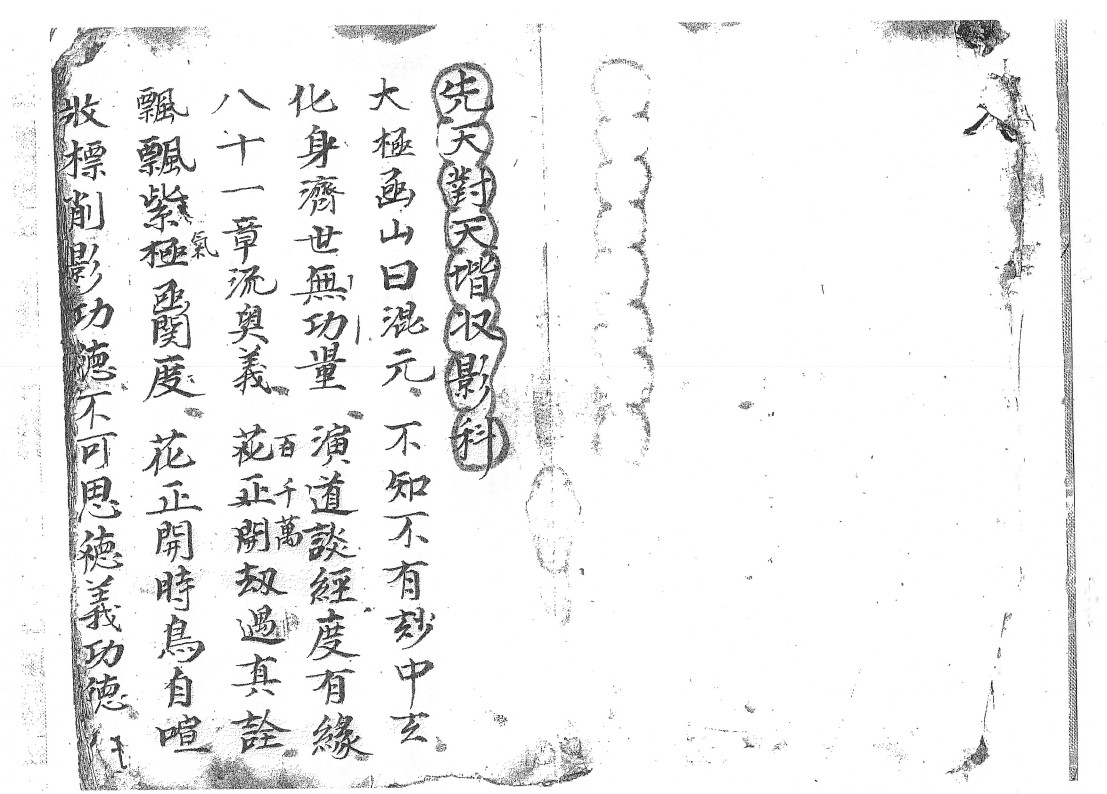 先天對天堦収影科
大極凾山曰混元 不知不有玅中玄
化身濟世無功量 演道談經度有緣
八十一章流奥義 花正開刼過真詮
百千萬
飄飄紫極凾関度 花正開時鳥自喧
氣
收標削影功德不可思德義功德